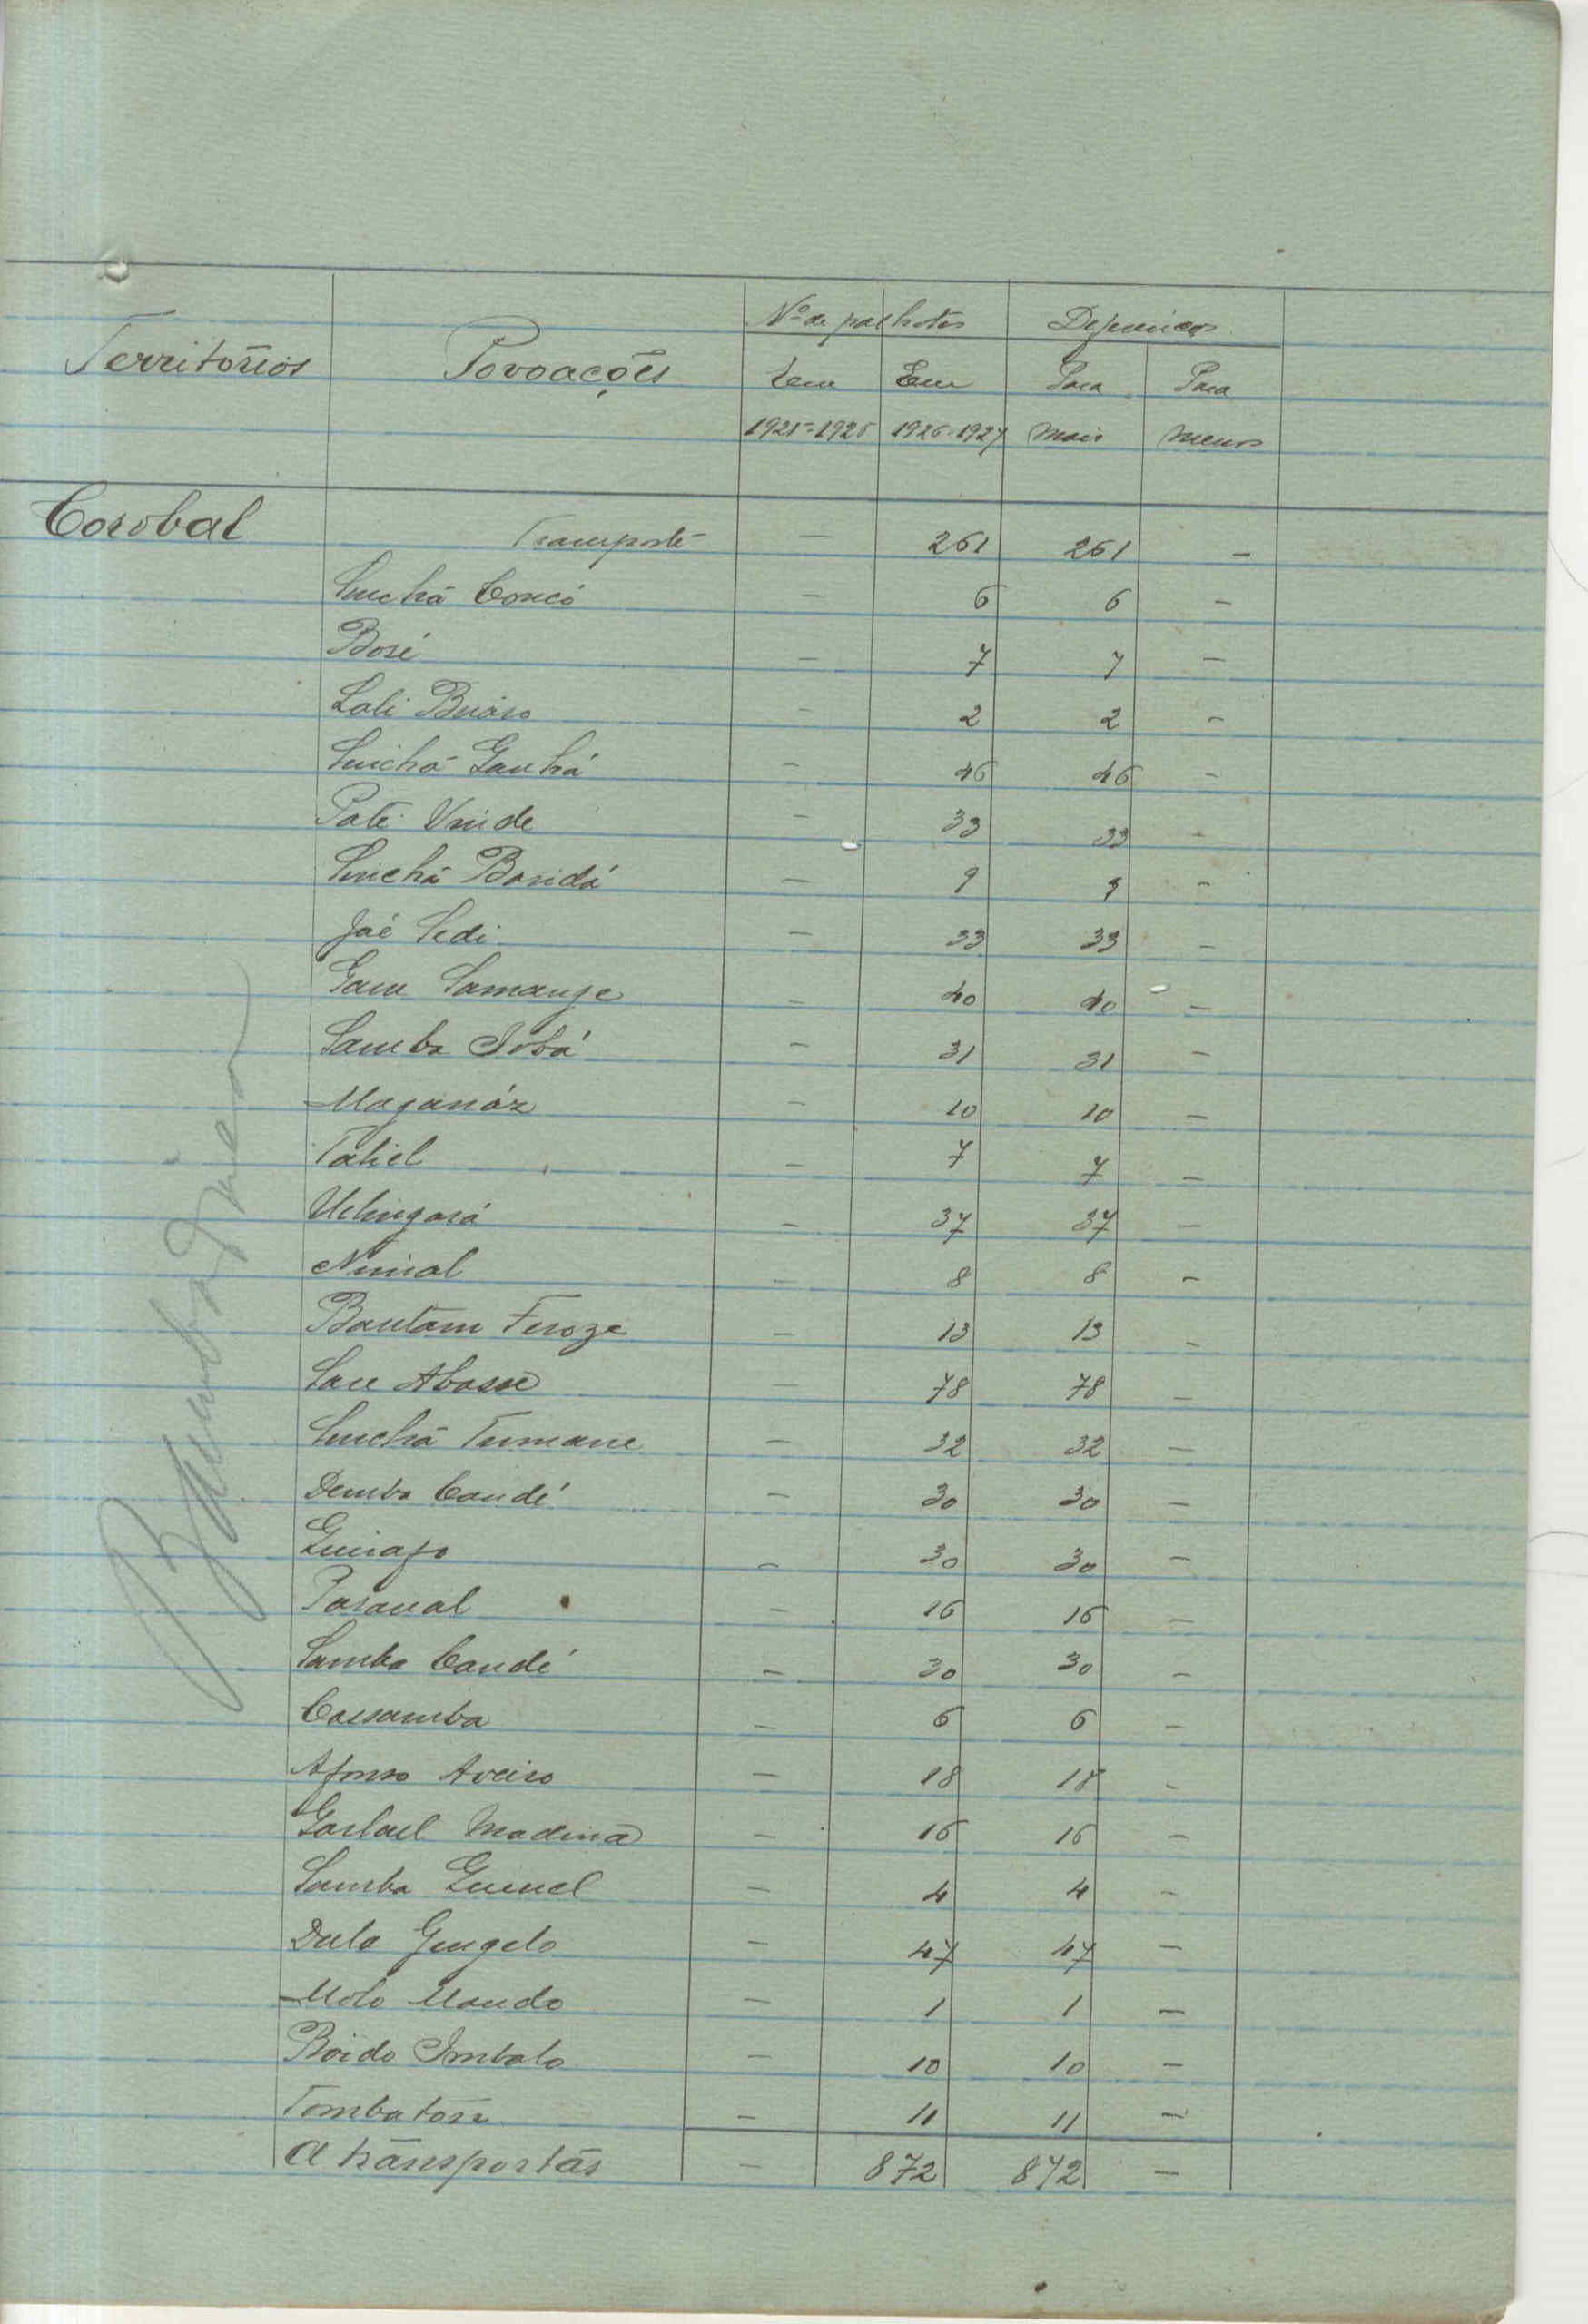 Nº de palhotas Diferenças
Territórios Povoações Em Em Para Para
1925-1926 1926-1927 mais menos
Corobal Transporte — 261 261 —
Sinchã Concó — 6 6 —
Bosé — 7 7 —
Lali — 2 2 —
Sinchã Ganhá — 46 46 —
Paté Unide — 33 33 —
Sinchã Baridá — 9 9 —
Jaé Sedi — 33 33 —
Gam Samange — 40 40 —
Samba Jobá — 31 31 —
Maganáz — 10 10 —
Tahiel — 7 7 —
Uelingará — 37 37 —
Numial — 8 8 —
Bantam Feroze — 13 13 —
Sare Abasse — 78 78 —
Sinchã Tumane — 32 32 —
Demba Candé — 30 30 —
— 30 30 —
Paranal — 16 16 —
Samba Candé — 30 30 —
Cossamba — 6 6 —
Afonso Aveiro — 18 18 —
Madina — 16 16 —
Samba — 4 4 —
Dulo Gengelo — 47 47 —
Molo Mando — 1 1 —
Boido Imbalo — 10 10 —
— 11 11 —
A transportar — 872 872 —